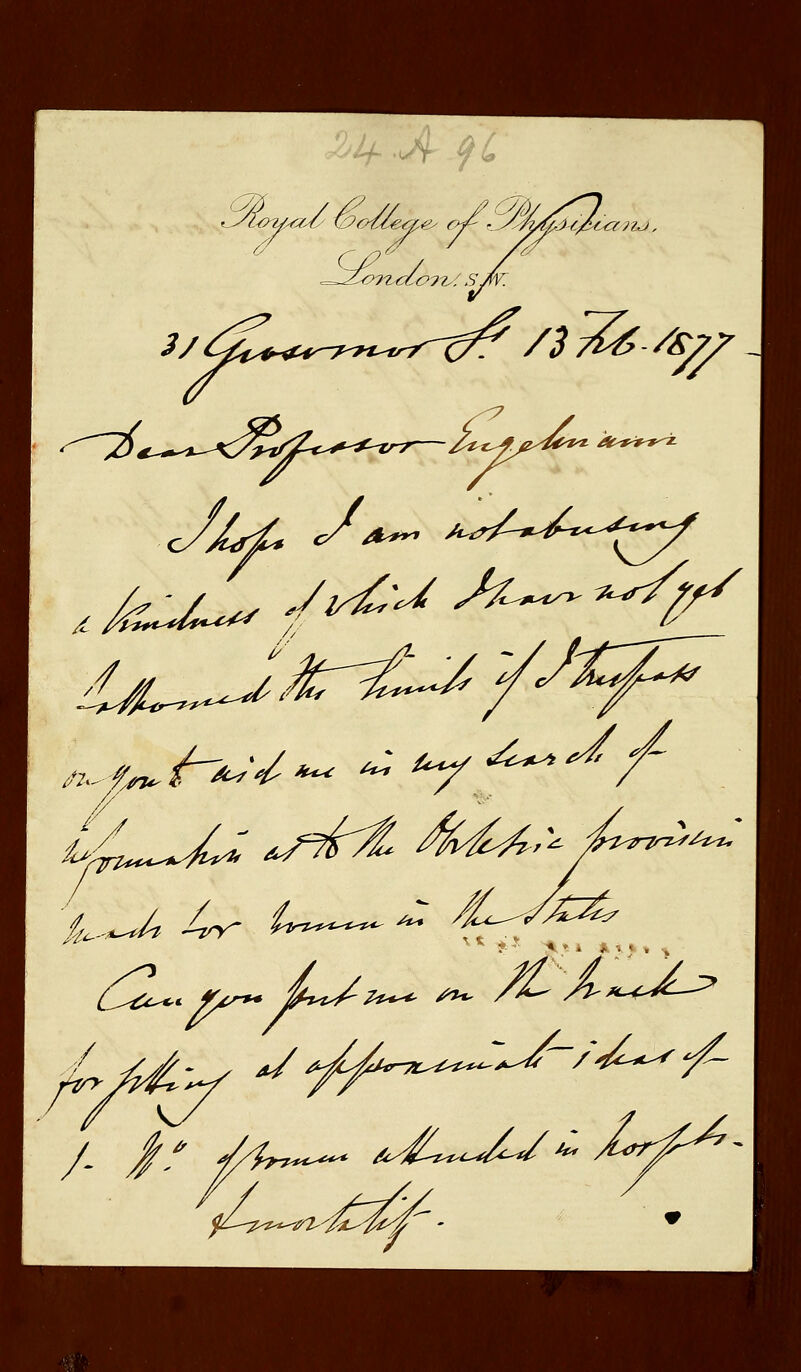 24. A 96
Royal College of Physicians.
London. S.W.
31 Grosvenor St. 13 Feb. 1877
Dear Professor Engelmann
I hope I am not abusing
a kindness of which I have not yet
fathomed the limits if I trespass
on you to aid me in my search of
information as to the Obstetric provision
made for women in the States
Can you put me on the track
for getting at approximate ideas of
1- No. of women attended in hospits-
& mortality.